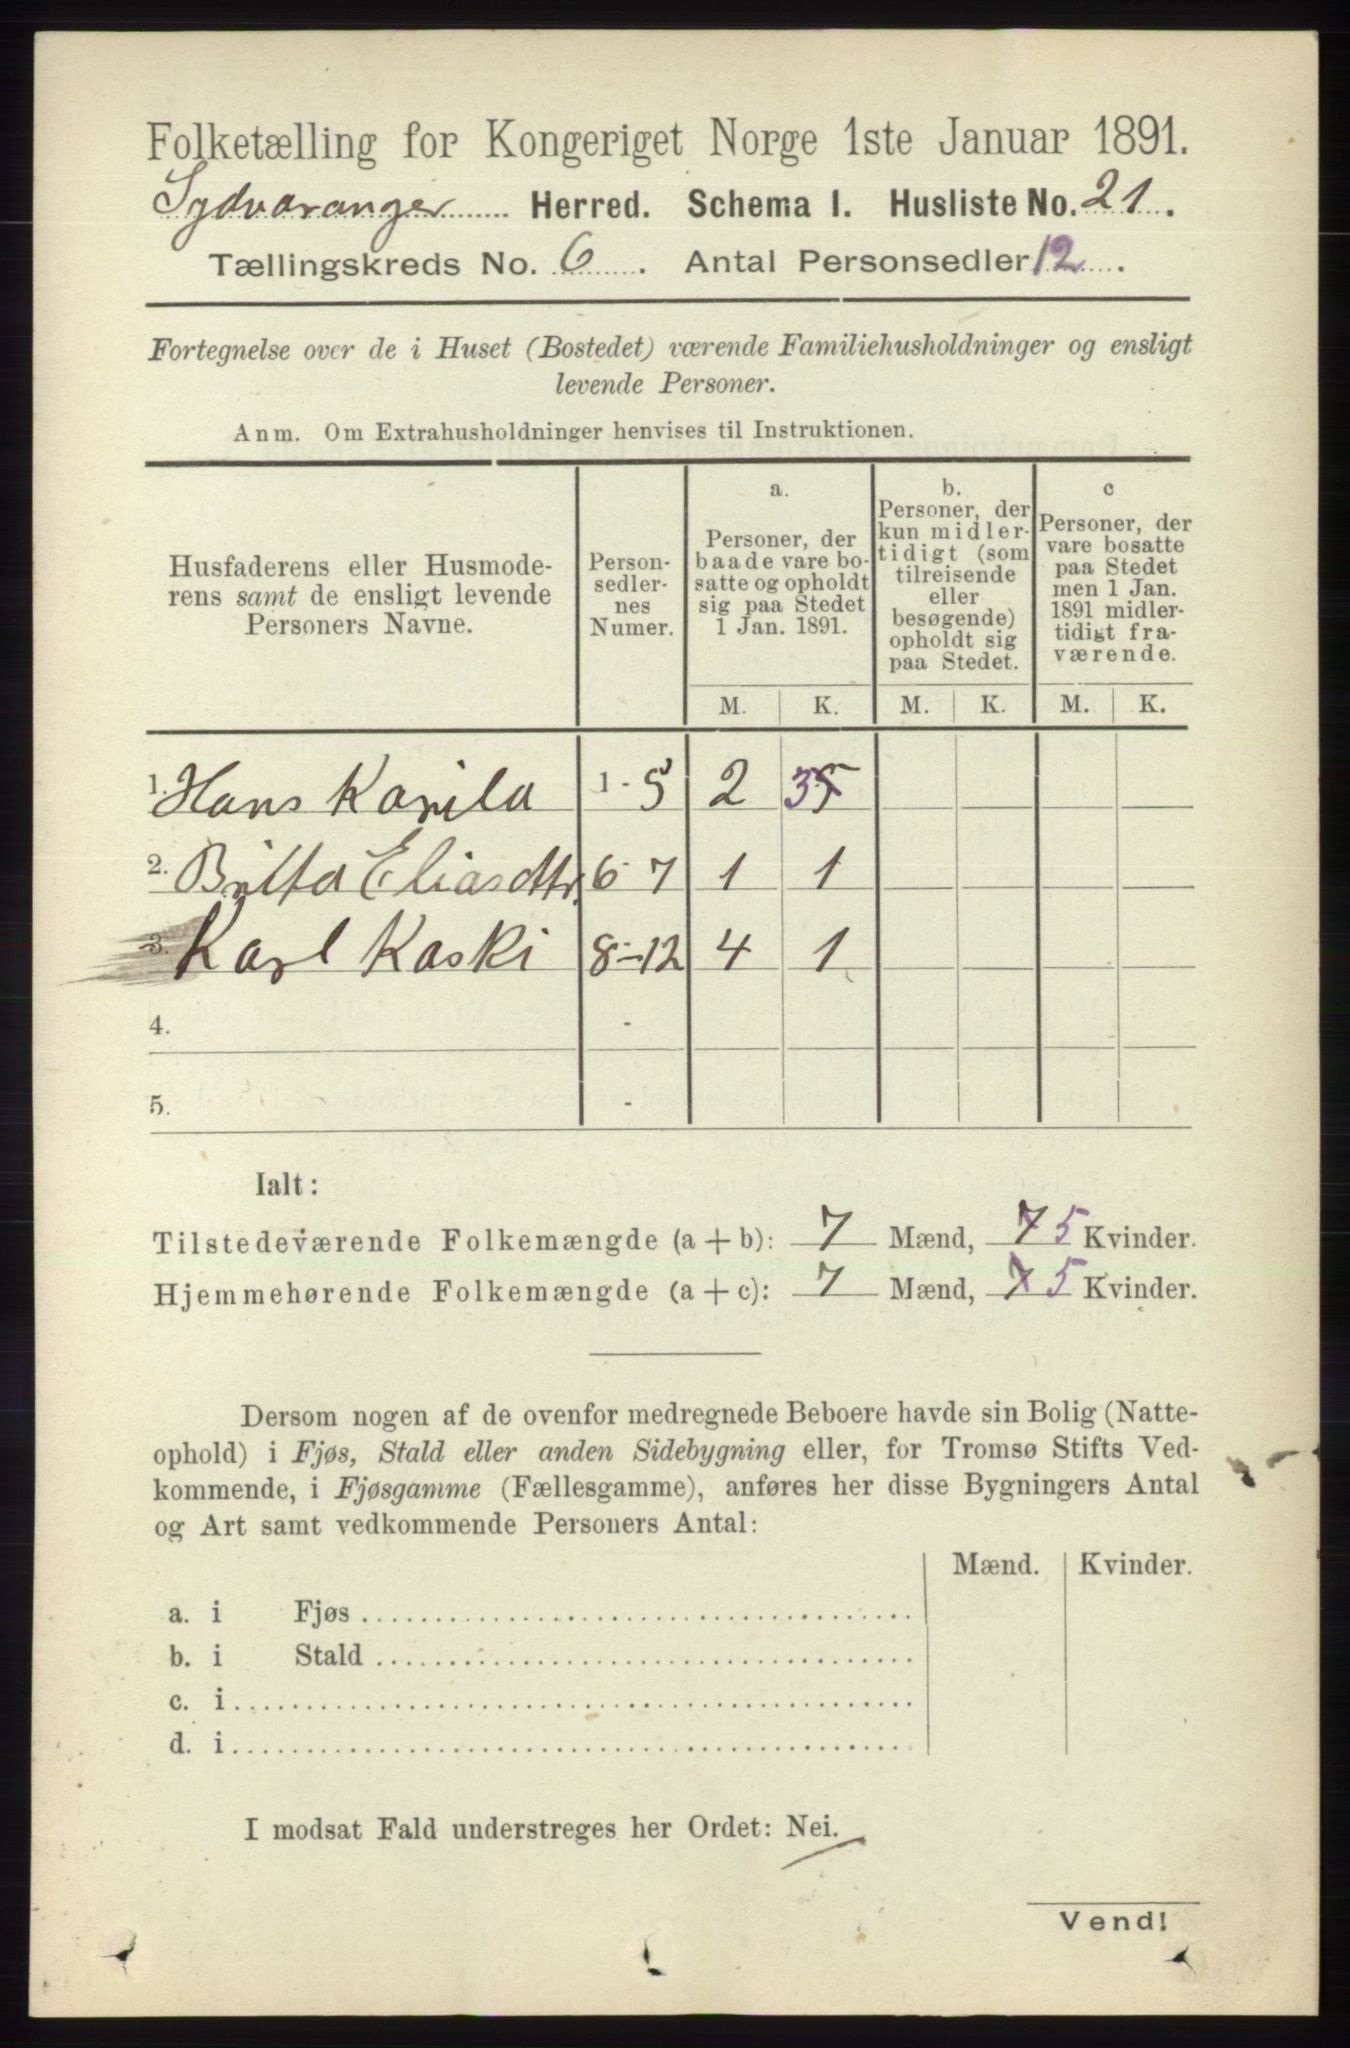 Folketælling for Kongeriget Norge 1ste Januar 1891.
Sydvaranger Herred. Schema I. Husliste No. 21.
Tællingskreds No. 6. Antal Personsedler 12.
Fortegnelse over de i Huset (Bostedet) værende Familiehusholdninger og ensligt
levende Personer.
Anm. Om Extrahusholdninger henvises til Instruktionen.
Husfaderens eller Husmode-
rens samt de ensligt levende
Personers Navne.
Person-
sedler-
nes
Numer.
a.
Personer, der
baade vare bo-
satte og opholdt
sig paa Stedet
1 Jan. 1891.
b.
Personer, der
kun midler-
tidigt (som
tilreisende
eller
besøgende)
opholdt sig
paa Stedet.
c
Personer, der
vare bosatte
paa Stedet
men 1 Jan.
1891 midler-
tidigt fra-
værende.
M. K. M. K. M. K.
1. Hans Karila 1 - 5 2 3 5
2. Britta Eliasdttr. 6 - 7 1 1
3. Karl Kaski 8 - 12 4 1
4. -
5. -
Ialt:
Tilstedeværende Folkemængde (a + b): 7 Mænd, 7 5 Kvinder.
Hjemmehørende Folkemængde (a + c): 7 Mænd, 7 5 Kvinder.
Dersom nogen af de ovenfor medregnede Beboere havde sin Bolig (Natte-
ophold) i Fjøs, Stald eller anden Sidebygning eller, for Tromsø Stifts Ved-
kommende, i Fjøsgamme (Fællesgamme), anføres her disse Bygningers Antal
og Art samt vedkommende Personers Antal:
Mænd. Kvinder.
a. i Fjøs
b. i Stald
c. i
d. i
I modsat Fald understreges her Ordet: Nei.
Vend!